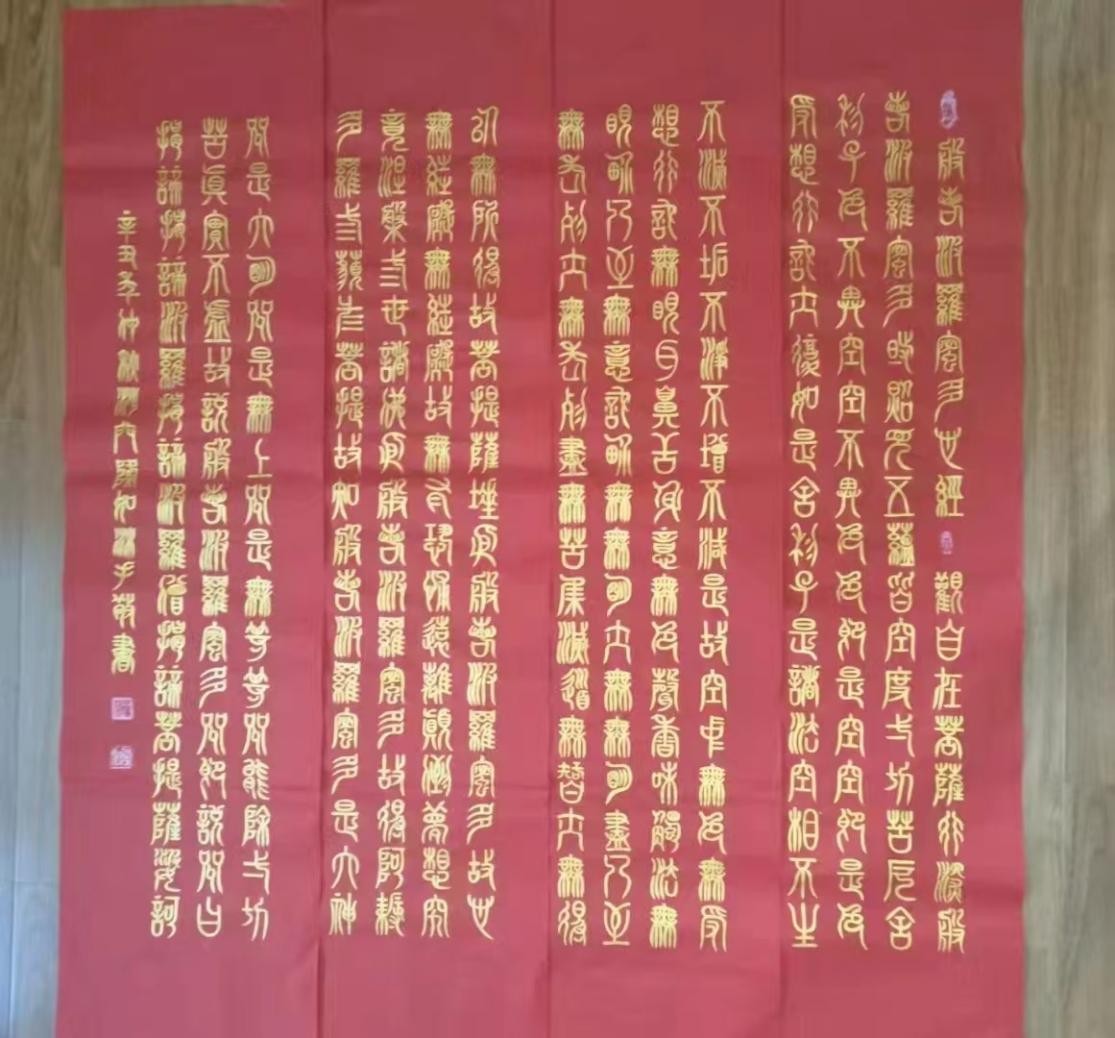 般若波羅蜜多心經 觀自在菩薩行深般
若波羅蜜多時照見五蘊皆空度一切苦厄舍
利子色不異空空不異色色即是空空即是色
受想行識亦復如是舍利子是諸法空相不生
不滅不垢不淨不增不減是故空中無色無受
想行識無眼耳鼻舌身意無色聲香味觸法無
眼界乃至無意識界無無明亦無無明盡乃至
無老死亦無老死盡無苦集滅道無智亦無得
以無所得故菩提薩埵依般若波羅蜜多故心
無罣礙無罣礙故無有恐怖遠離顛倒夢想究
竟涅槃三世諸佛依般若波羅蜜多故得阿耨
多羅三藐三菩提故知般若波羅蜜多是大神
咒是大明咒是無上咒是無等等咒能除一切
苦真實不虛故說般若波羅蜜多咒即說咒曰
揭諦揭諦波羅揭諦波羅僧揭諦菩提薩婆訶
辛丑年仲秋敬書